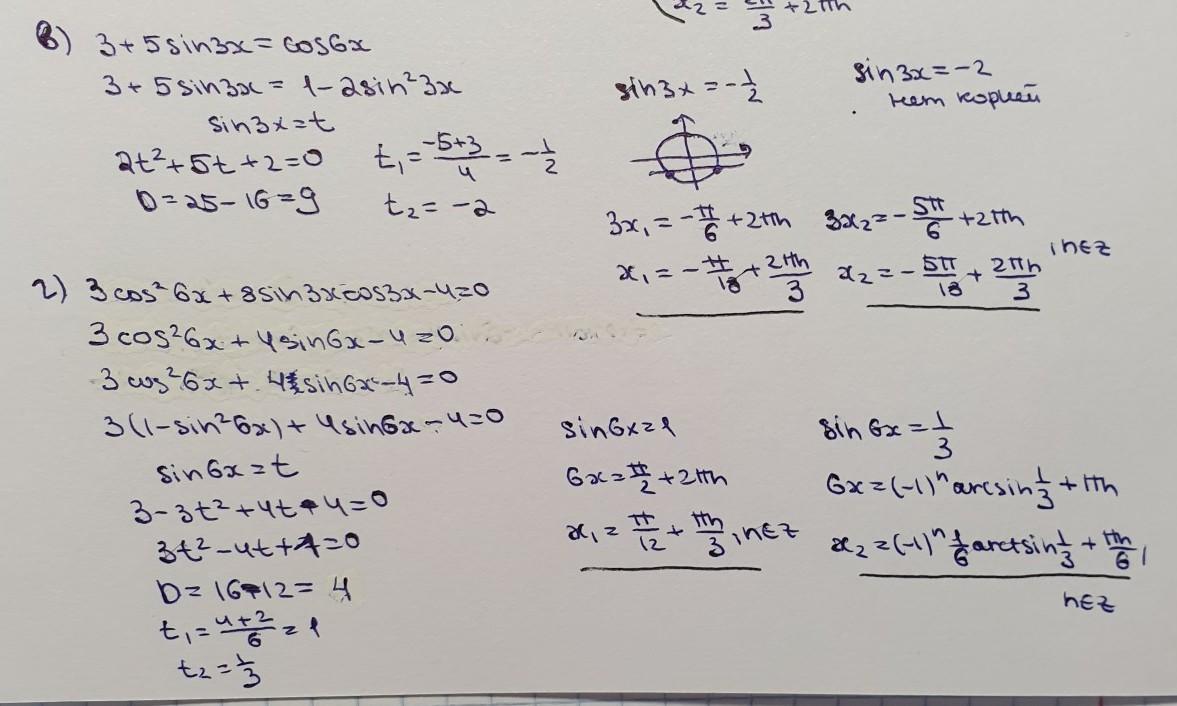 x₂ = 2π/3 + 2πn
в) 3 + 5sin3x = cos6x
3 + 5sin3x = 1 - 2sin²3x
sin3x = t
2t² + 5t + 2 = 0
D = 25 - 16 = 9
t₁ = (-5+3)/4 = -1/2
t₂ = -2
sin3x = -1/2
sin3x = -2
нет корней
3x₁ = -π/6 + 2πn
3x₂ = -5π/6 + 2πn
x₁ = -π/18 + 2πn/3
x₂ = -5π/18 + 2πn/3
, n∈Z
г) 3cos²6x + 8sin3xcos3x - 4 = 0
3cos²6x + 4sin6x - 4 = 0
3cos²6x + 4sin6x - 4 = 0
3(1 - sin²6x) + 4sin6x - 4 = 0
sin6x = t
3 - 3t² + 4t - 4 = 0
3t² - 4t + 1 = 0
D = 16 - 12 = 4
t₁ = (4+2)/6 = 1
t₂ = 1/3
sin6x = 1
6x = π/2 + 2πn
x₁ = π/12 + πn/3, n∈Z
sin6x = 1/3
6x = (-1)ⁿ arcsin 1/3 + πn
x₂ = (-1)ⁿ 1/6 arctsin 1/3 + πn/6,
n∈Z